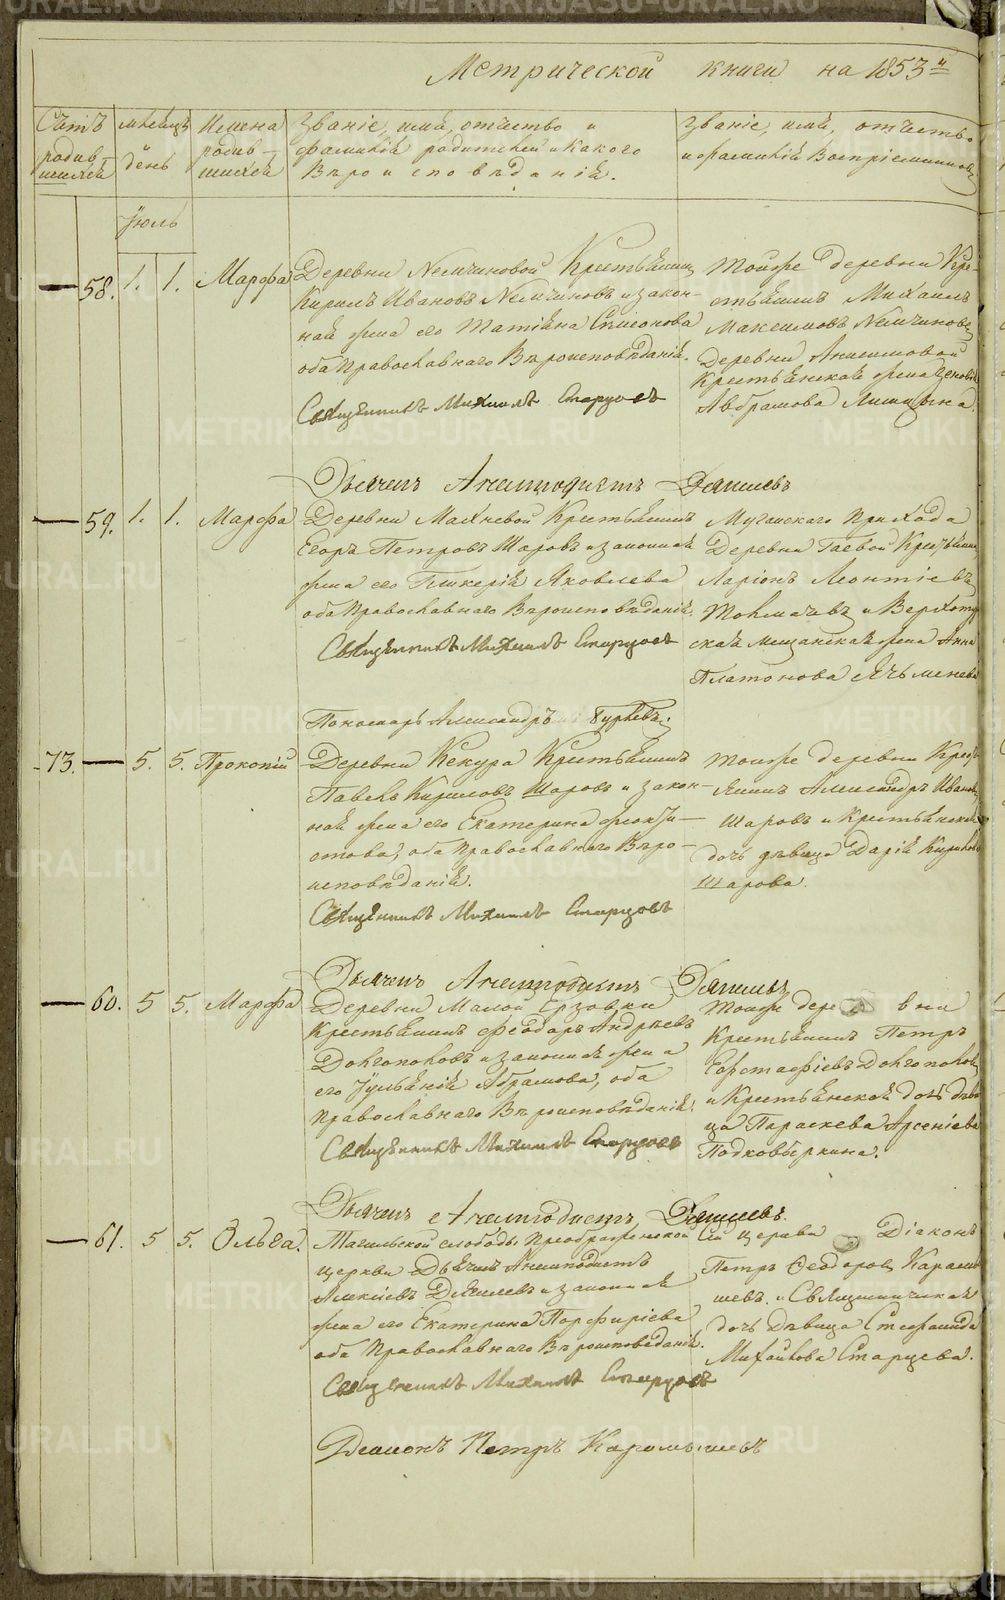 Метрической книги на 1853 й
Счетъ родившихся
мѣсяцъ день
Имена родившихся
Званіе, имя, отчество и
фамилія родителей и какого
Вѣроисповѣданія.
Званіе, имя, отчество
и фамилія Воспріемниковъ
Іюль
— 58. 1. 1. Марфа
Деревни Немчиновой Крестьянинъ
Кирилъ Ивановъ Немчиновъ и закон-
ная жена его Татіяна Симеонова
оба Православнаго Вѣроисповѣданія.
Священникъ Михаилъ Старцовъ
Тойже деревни Кре-
стьянинъ Михаилъ
Максимовъ Немчиновъ,
Деревни Анисимовой
Крестьянская жена
Авбрамова
Дьячекъ Анемподистъ Дягилевъ
— 59. 1. 1. Марфа
Деревни Махневой Крестьянинъ
Егоръ Петровъ Шаровъ и законная
жена его Гликерія Яковлева
оба Православнаго Вѣроисповѣданія.
Священникъ Михаилъ Старцовъ
Мугайскаго Прихода
Деревни Гаевой Крестьянинъ
Ларіонъ Леонтіевъ
Толмачевъ и Верхотур
ская мещанская жена Анна
Платонова Ячменева
Пономарь Александръ Гурьевъ.
73. — 5. 5. Прокопій
Деревни Кекура Крестьянинъ
Павелъ Кириловъ Шаровъ и закон-
ная жена его Екатерина Феокти-
стова, оба Православнаго Вѣро-
исповѣданія.
Священникъ Михаилъ Старцовъ
Тойже деревни Кресть
янинъ Александръ Ивановъ
Шаровъ и Крестьянская
дочь дѣвица Дарія Кирилова
Шарова.
Дьячекъ Анемподистъ Дягилевъ
— 60. 5 5. Марфа
Деревни Малой Ерзовки
Крестьянинъ Феодоръ Андреевъ
Долгополовъ и законная жена
его Іульянія Абрамова, оба
Православнаго Вѣроисповѣданія.
Священникъ Михаилъ Старцовъ
Тойже дере вни
Крестьянинъ Петръ
Евстафіевъ Долгополовъ
и Крестьянской дочь дѣви
ца Параскева Арсеніева
Подковыркина.
Дьячекъ Анемподистъ Дягилевъ.
— 61. 5 5. Ольга.
Тагильской слободы Преображенской
церкви Дьячекъ Анемподистъ
Алексіевъ Дягилевъ и законная
жена его Екатерина Порфиріева
оба Православнаго Вѣроисповеданія.
Священникъ Михаилъ Старцовъ
Сей церкви Діаконъ
Петръ Феодоровъ Карамы
шевъ и Священническая
дочь Дѣвица Стефанида
Михайлова Старцева.
Діаконъ Петръ Карамышевъ